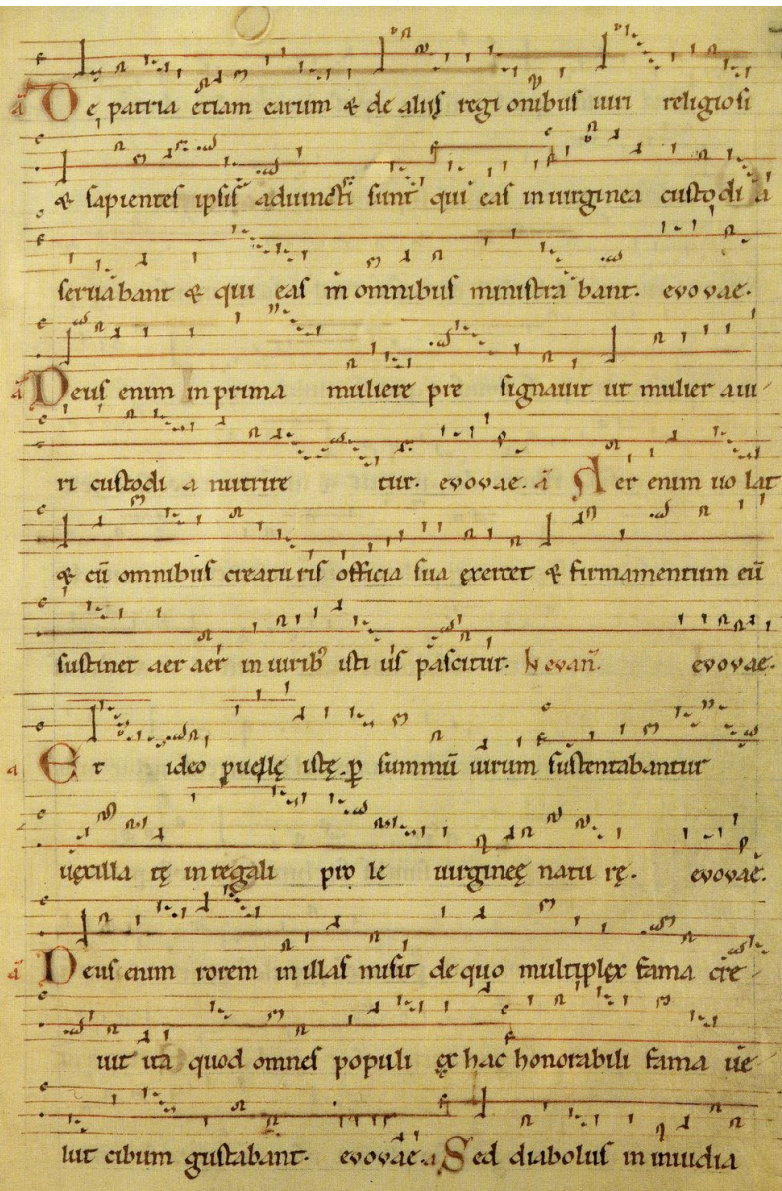 a᷃ De patria etiam earum & de aliis regionibus uiri religiosi
& sapientes ipsis adiuncti sunt qui eas in uirginea custodia
seruabant & qui eas in omnibus ministrabant. evovae.
a᷃ Deus enim in prima muliere presignauit ut mulier a ui-
ri custodia nutriretur. evovae. a᷃ Aer enim uolat
& cū omnibus creaturis officia sua exercet & firmamentum eū
sustinet aer aer in uirib; istius pascitur. evovae.
a Et ideo puellę istę p̱ summū uirum sustentabantur
uexillatę in regali prole uirgineę naturę. evovae.
a᷃ Deus enim rorem in illas misit de quo multiplex fama cre-
uit ita quod omnes populi ex hac honorabili fama ue-
lut cibum gustabant. evovae. a Sed diabolus in inuidia